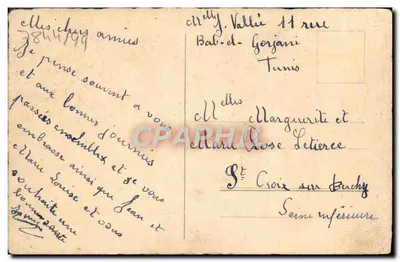 Mes chers amies
7844/99
Je pense souvent à vous
et aux bonnes journées
passées ensembles et je vous
embrasse ainsi que Jean et
Marie Louise et vous
souhaite une
bonne santé
Melle J. Vallée 11 rue
Bab-el-Gorjani
Tunis
Melles Marguerite et
Marie Rose Letierce
St Croix sur Buchy
Seine inférieure
CPARAMA